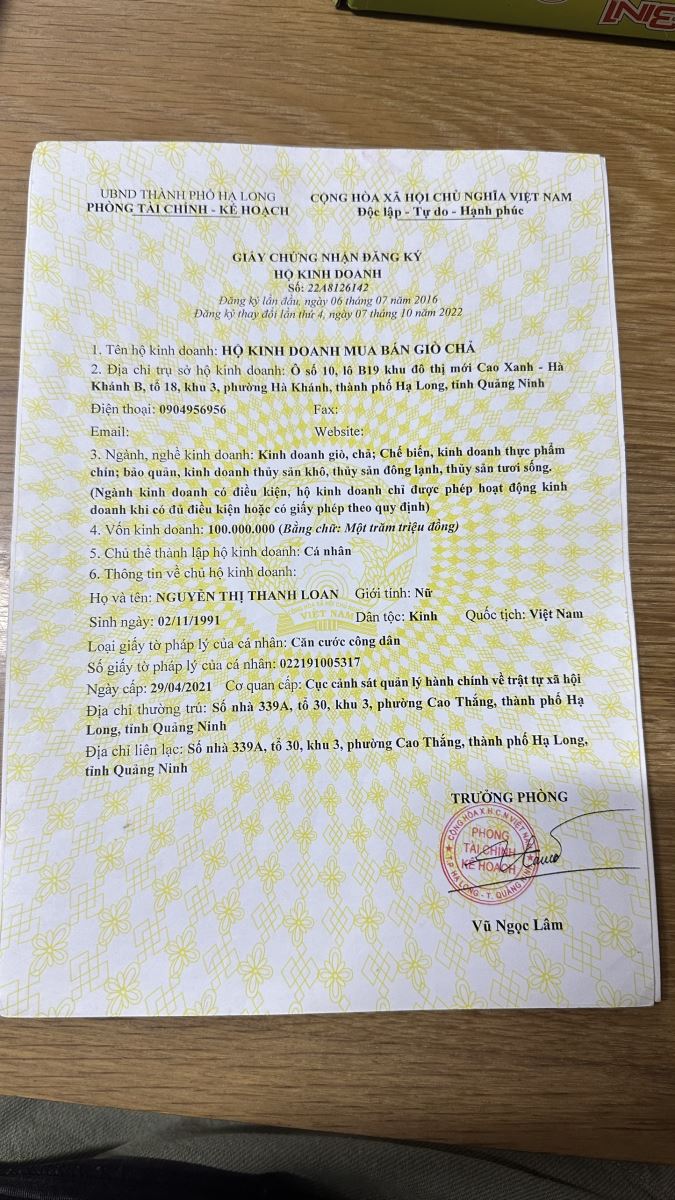 3IN1
UBND THÀNH PHỐ HẠ LONG
PHÒNG TÀI CHÍNH - KẾ HOẠCH
CỘNG HÒA XÃ HỘI CHỦ NGHĨA VIỆT NAM
Độc lập - Tự do - Hạnh phúc
GIẤY CHỨNG NHẬN ĐĂNG KÝ
HỘ KINH DOANH
Số: 22A8126142
Đăng ký lần đầu, ngày 06 tháng 07 năm 2016
Đăng ký thay đổi lần thứ 4, ngày 07 tháng 10 năm 2022
1. Tên hộ kinh doanh: HỘ KINH DOANH MUA BÁN GIÒ CHẢ
2. Địa chỉ trụ sở hộ kinh doanh: Ô số 10, lô B19 khu đô thị mới Cao Xanh - Hà
Khánh B, tổ 18, khu 3, phường Hà Khánh, thành phố Hạ Long, tỉnh Quảng Ninh
Điện thoại: 0904956956 Fax:
Email: Website:
3. Ngành, nghề kinh doanh: Kinh doanh giò, chả; Chế biến, kinh doanh thực phẩm
chín; bảo quản, kinh doanh thủy sản khô, thủy sản đông lạnh, thủy sản tươi sống.
(Ngành kinh doanh có điều kiện, hộ kinh doanh chỉ được phép hoạt động kinh
doanh khi có đủ điều kiện hoặc có giấy phép theo quy định)
4. Vốn kinh doanh: 100.000.000 (Bằng chữ: Một trăm triệu đồng)
5. Chủ thể thành lập hộ kinh doanh: Cá nhân
6. Thông tin về chủ hộ kinh doanh:
Họ và tên: NGUYỄN THỊ THANH LOAN Giới tính: Nữ
Sinh ngày: 02/11/1991 Dân tộc: Kinh Quốc tịch: Việt Nam
Loại giấy tờ pháp lý của cá nhân: Căn cước công dân
Số giấy tờ pháp lý của cá nhân: 022191005317
Ngày cấp: 29/04/2021 Cơ quan cấp: Cục cảnh sát quản lý hành chính về trật tự xã hội
Địa chỉ thường trú: Số nhà 339A, tổ 30, khu 3, phường Cao Thắng, thành phố Hạ
Long, tỉnh Quảng Ninh
Địa chỉ liên lạc: Số nhà 339A, tổ 30, khu 3, phường Cao Thắng, thành phố Hạ Long,
tỉnh Quảng Ninh
VIỆT NAM
TRƯỞNG PHÒNG
CỘNG HÒA X.H.C.N VIỆT NAM
PHÒNG
TÀI CHÍNH
KẾ HOẠCH
T.P HẠ LONG - T. QUẢNG NINH
Vũ Ngọc Lâm